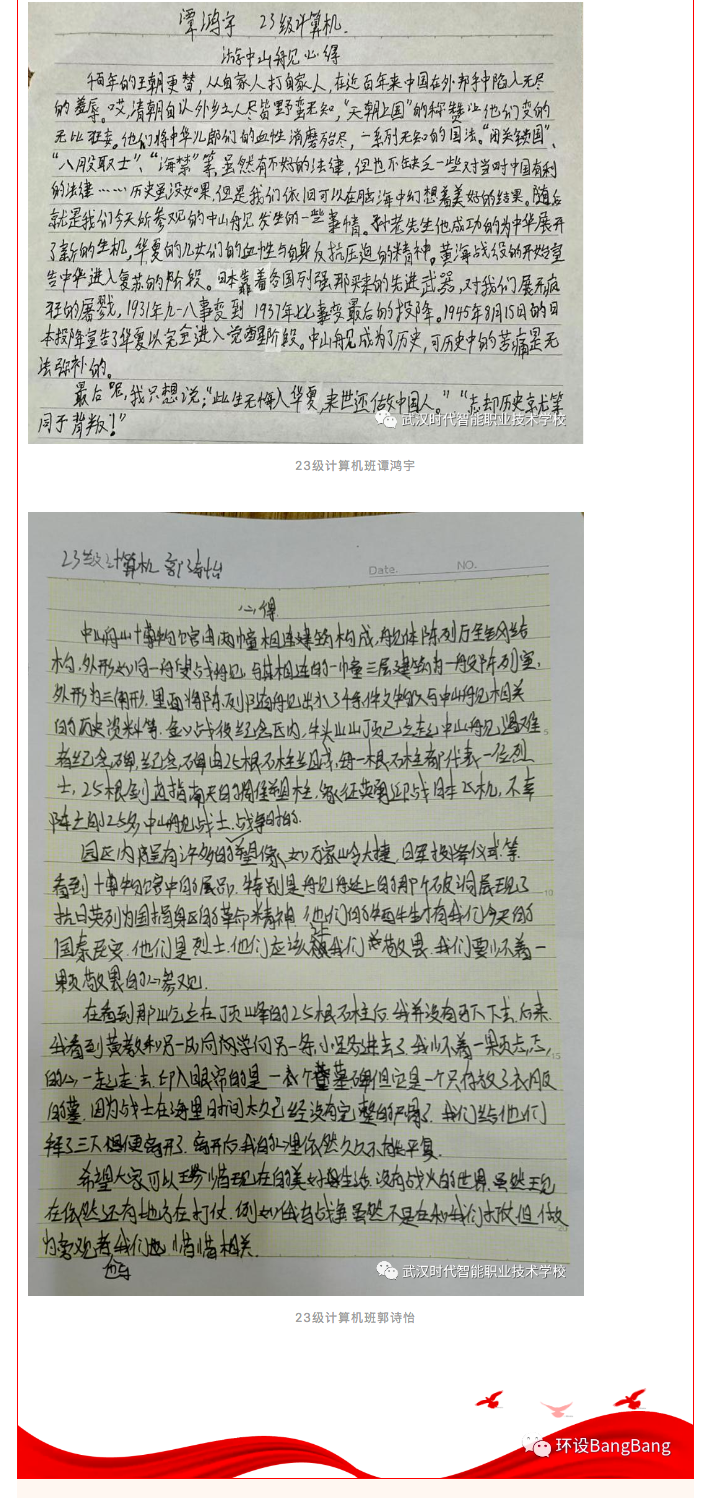 谭鸿宇 23级计算机.
游中山舰心得
千百年的王朝更替,从自家人打自家人,在近百年来中国在外邦手中陷入无尽
的羞辱。哎,清朝自以外乡之人尽皆野蛮无知,“天朝上国”的称赞让他们变的
无比狂妄。他们将中华儿郎们的血性消磨殆尽,一系列无知的国法。“闭关锁国”、
“八股取士”、“海禁”等,虽然有不好的法律,但也不缺乏一些对当时中国有利
的法律……历史虽没如果,但是我们依旧可以在脑海中幻想着美好的结果。随后
就是我们今天所参观的中山舰发生的一些事情。孙老先生他成功的为中华展开
了新的生机,华夏的儿女们的血性与自身反抗压迫的精神。黄海战役的开始宣
告中华进入复苏的阶段。日本靠着各国列强那买来的先进武器,对我们展开疯
狂的屠戮,1931年九一八事变到1937年七七事变最后的投降。1945年8月15日的日
本投降宣告了华夏以完全进入觉醒阶段。中山舰成为了历史,可历史中的苦痛是无
法弥补的。
最后呢,我只想说:“此生无悔入华夏,来世还做中国人。”“忘却历史就等
同于背叛!”
武汉时代智能职业技术学校
23级计算机班谭鸿宇
23级计算机 郭诗怡
Date. NO.
心得
中山舰博物馆由两幢相连建筑构成,舰体陈列厅呈钢结
构,外形如同一艘战舰,与其相连的一幢三层建筑为一般陈列室,
外形为三角形,里面将陈列随舰出水3千余件文物以与中山舰相关
的历史资料等.金口战役纪念区内,牛头山山顶已立起中山舰遇难
者纪念碑,纪念碑由25根石柱组成,每一根石柱都代表一位烈
士,25根剑直指南天的雕塑柱,象征英勇迎战日本飞机,不幸
阵亡的25名中山舰战士.战时的.
园区内陈呈有许多的塑像、如万家岭大捷,日军投降仪式等.
看到博物馆中的展品,特别是舰身上的那个破洞展现了
抗日英烈为国捐躯的革命精神.他们的牺牲才有我们今天的
国泰民安.他们是烈士.他们应该被我们敬畏.我们要怀着一
颗敬畏的心参观.
在看到那屹立在顶峰的25根石柱后.我并没有马下去.后来.
我看到黄教和另一队同学向另一条小路进去了.我怀着一颗忐忑
的心,一起走去.印入眼帘的是一个墓碑但它是一个只存放了衣服
的墓.因为战士在海里时间太久已经没有完整的尸骨了.我们给他们
拜了三下便离开了.离开后我的心里依然久久不能平复.
希望大家可以珍惜现在的美好生活.没有战火的世界.虽然现
在依然还有地方在打仗.例如俄乌战争虽然不是在和我们打仗.但做
为旁观者我们也息息相关.
武汉时代智能职业技术学校
23级计算机班郭诗怡
环设BangBang